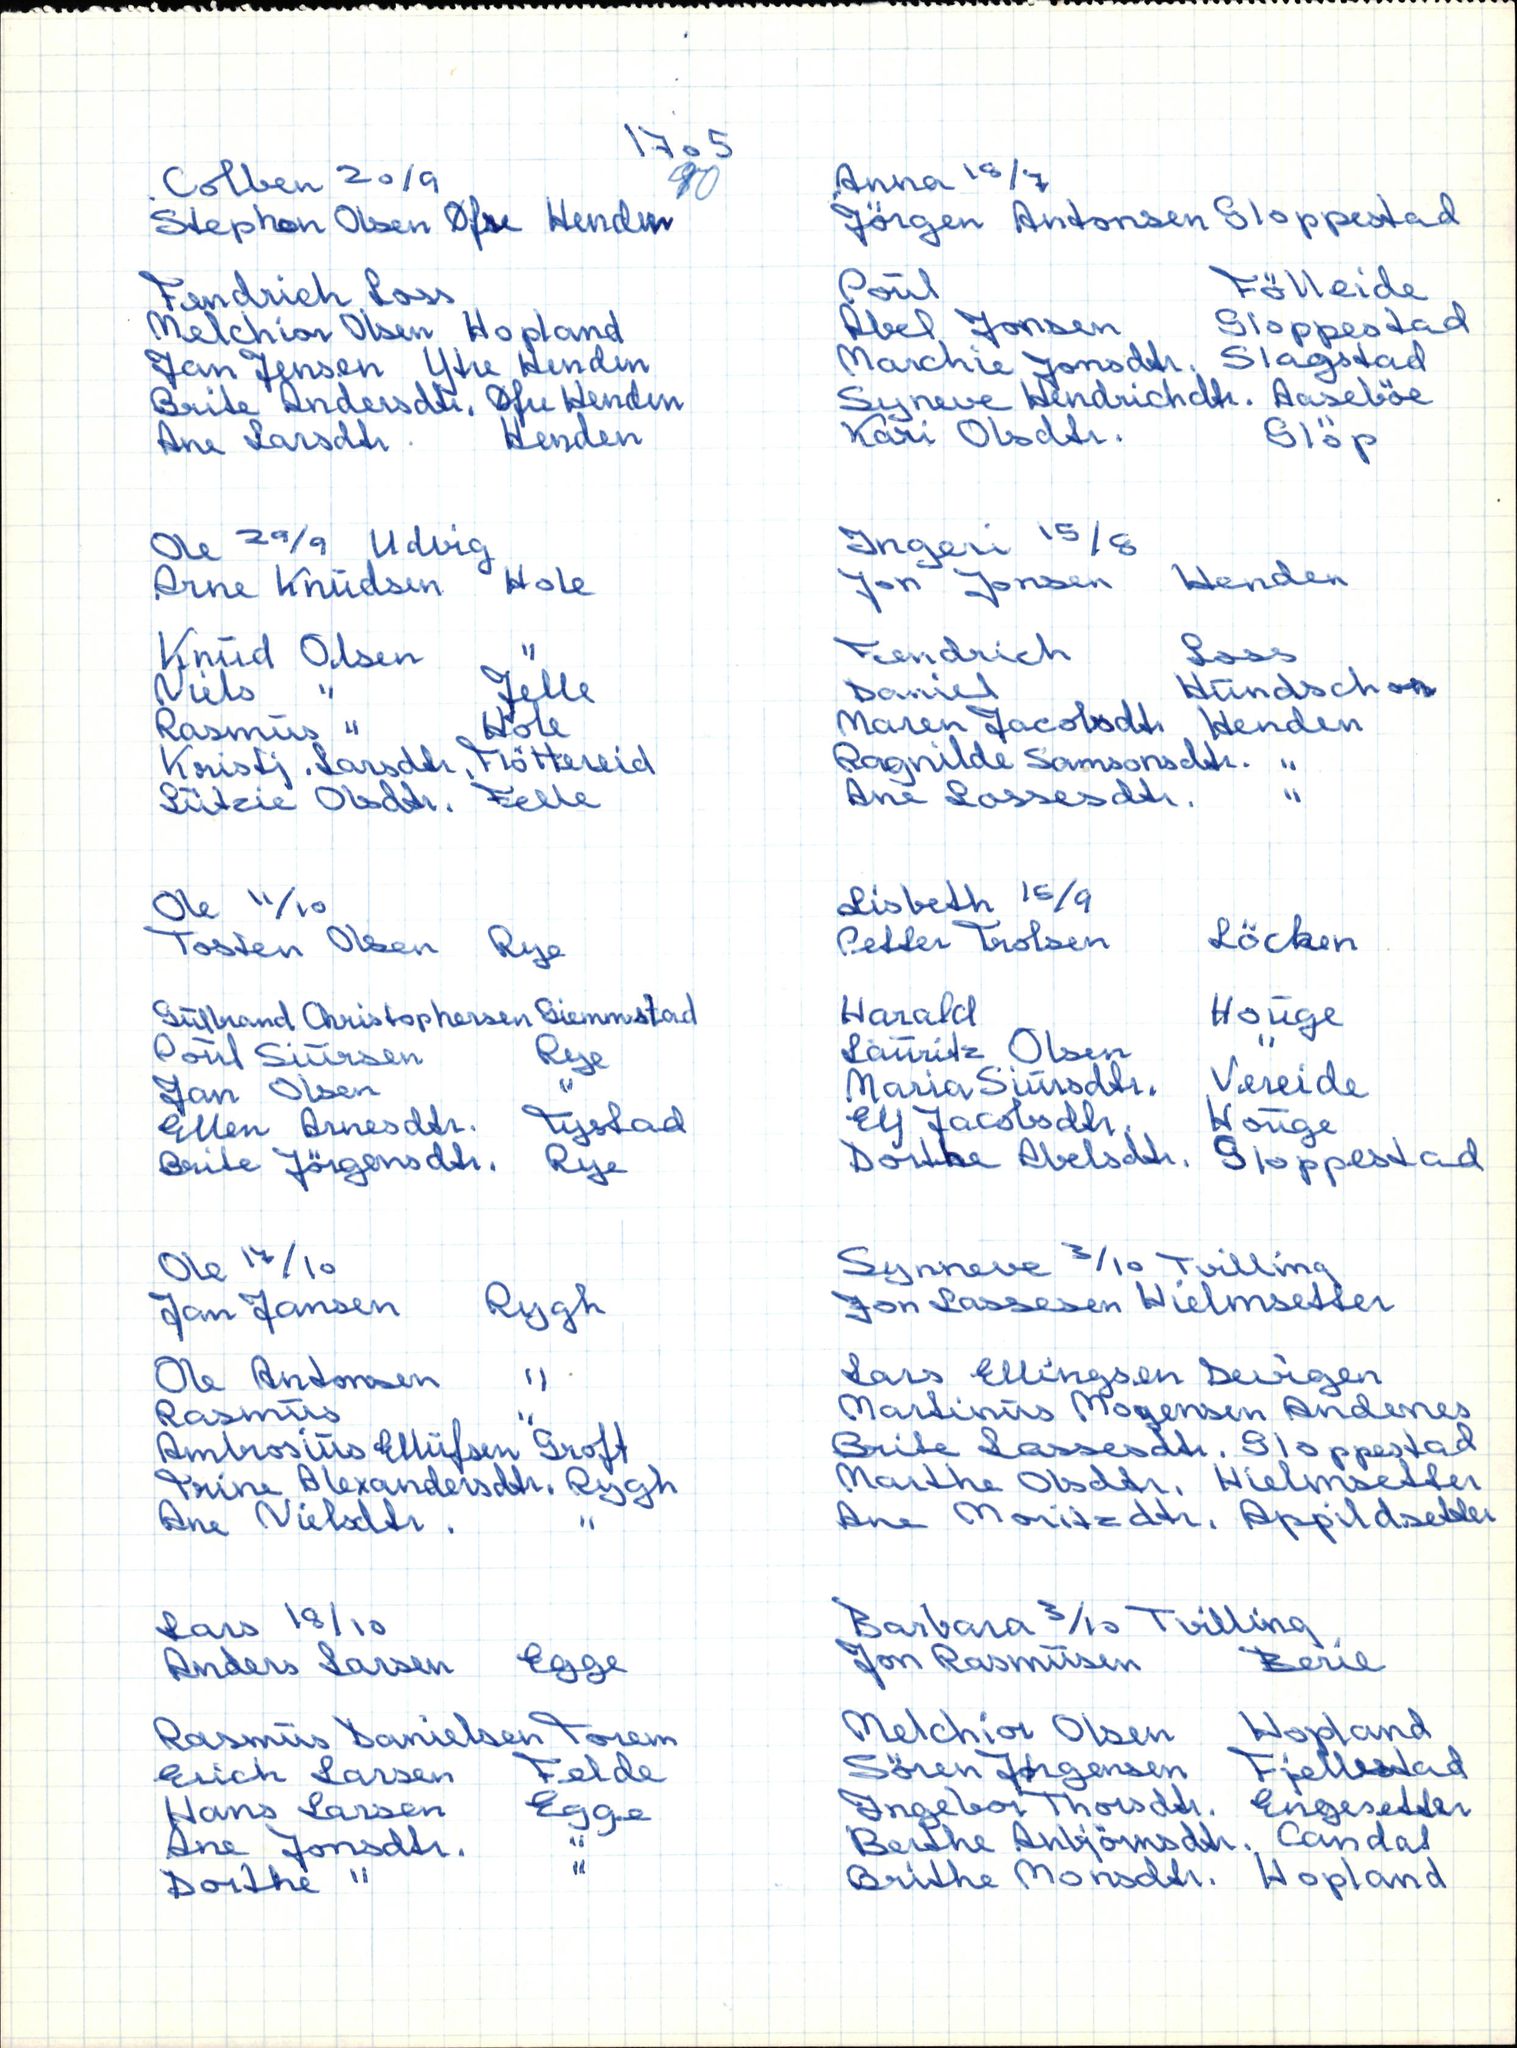 1705
Colben 20/9
Stephen Olsen Øfre Henden
Fendrich Loss
Melchior Olsen Hopland
Jan Jensen Ytre Henden
Brite Andersdtr. Øfre Henden
Ane Larsdtr. Henden
Ole 29/9 Udvig
Arne Knŭdsen Hole
Knŭd Olsen "
Niels " Jelle
Rasmŭs " Hole
Kristj. Larsdtr. Flöttereid
Lŭtzie Olsdtr. Felle
Ole 11/10
Tosten Olsen Rye
Gŭlbrand Christophersen Giemmestad
Poŭl Siŭrsen Rye
Jan Olsen "
Ellen Arnesdtr. Tystad
Brite Jörgensdtr. Rye
Ole 17/10
Jan Jansen Rygh
Ole Antonsen "
Rasmŭs "
Ambrosiŭs Ellŭfsen Groft
Trine Alexandersdtr. Rygh
Ane Nielsdtr. "
Lars 18/10
Anders Larsen Egge
Rasmŭs Danielsen Torem
Erich Larsen Felde
Hans Larsen Egge
Ane Jonsdtr. "
Dorthe " "
Anna 18/7
Jörgen Antonsen Gloppestad
Poŭl Fölleide
Abel Jonsen Gloppestad
Marchie Jonsdtr. Slagstad
Syneve Hendrichdtr. Aaseböe
Kari Olsdtr. Glöp
Ingeri 15/8
Jon Jonsen Henden
Fendrich Loss
Daniel Hŭndschon
Maren Jacobsdtr Henden
Ragnilde Samsonsdtr. "
Ane Lassesdtr. "
Lisbeth 15/9
Petter Trolsen Löcken
Harald Hoŭge
Laŭritz Olsen "
Maria Siŭrsdtr. Vereide
Elj Jacobsdtr. Hoŭge
Dorthe Abelsdtr. Gloppestad
Synneve 3/10 Tvilling
Jon Lassesen Hielmsetter
Lars Ellingsen Devigen
Martinŭs Mogensen Andenes
Brite Lassesdtr. Gloppestad
Marthe Olsdtr. Hielmsetter
Ane Moritzdtr. Appildsetter
Barbara 3/10 Tvilling
Jon Rasmŭsen Berie
Melchior Olsen Hopland
Sören Jörgensen Fjellestad
Ingebor Thorsdtr. Engesetter
Berthe Anbjörnsdtr. Candal
Brithe Monsdtr. Hopland